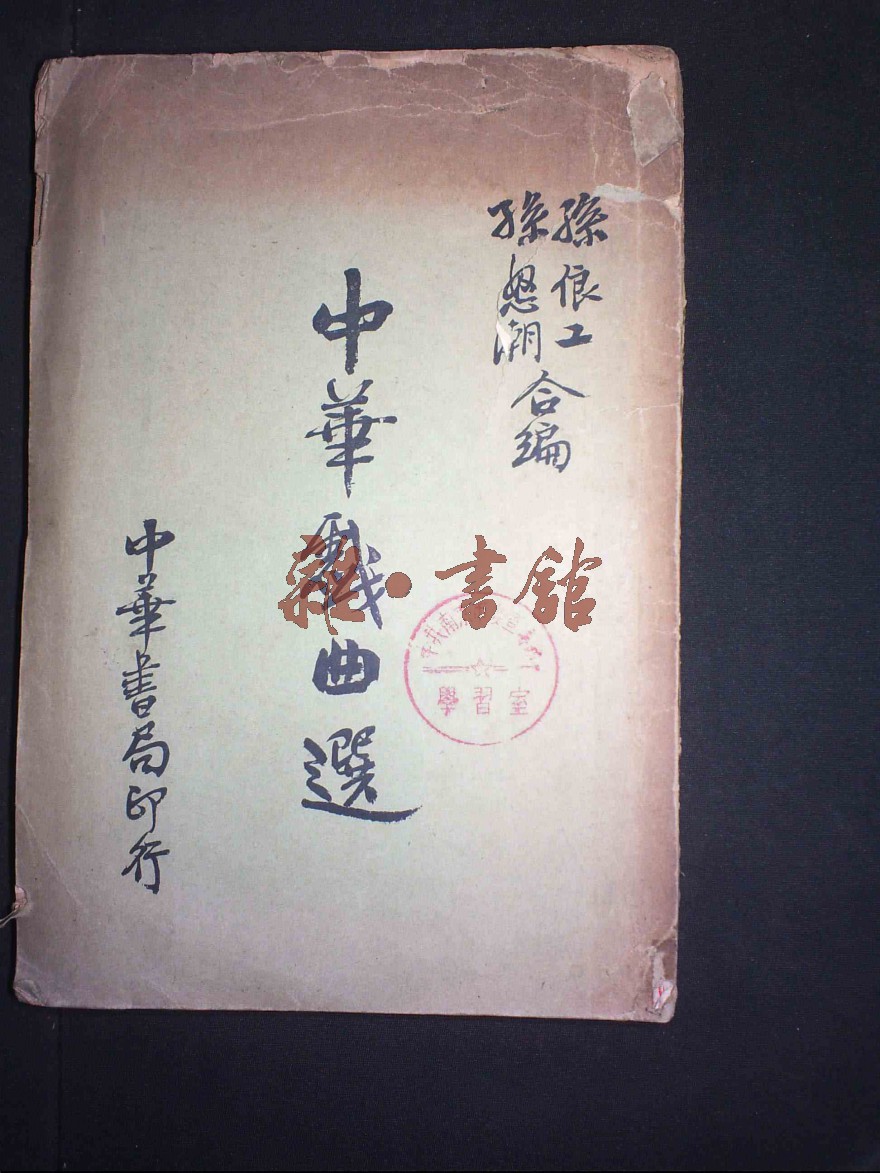 孫俍工
孫怒潮
合編
中華戲曲選
中華書局印行
雜·書館
學習室